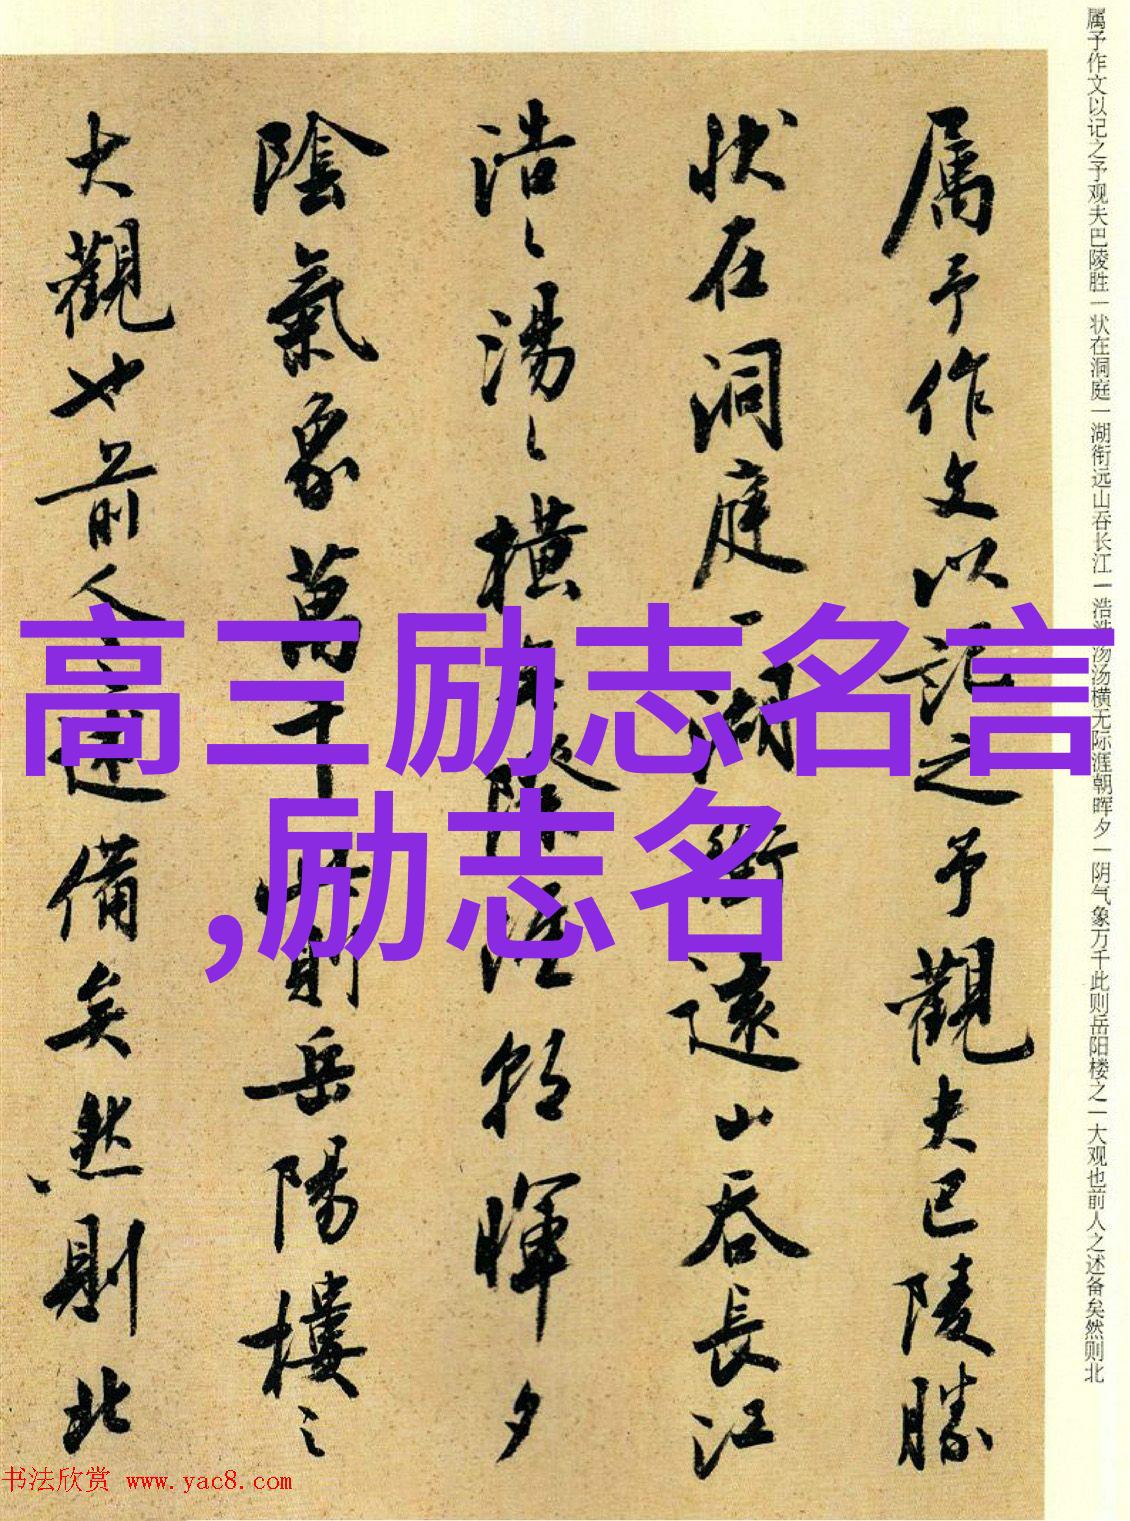 属予作文以记之予观夫巴陵胜一状在洞庭一湖衔远山吞长江一浩浩汤汤横无际涯朝晖夕一阴气象万千此则岳阳楼之一大观也前人之述备矣然则北
属予作文以記之予觀夫巴陵勝
状在洞庭一湖銜遠山吞長江
浩〻湯〻橫無際涯朝暉夕
陰氣象萬千此則岳陽樓之
大觀也前人之述備矣然則北
高三励志名言
,励志名
书法欣赏 www.yac8.com